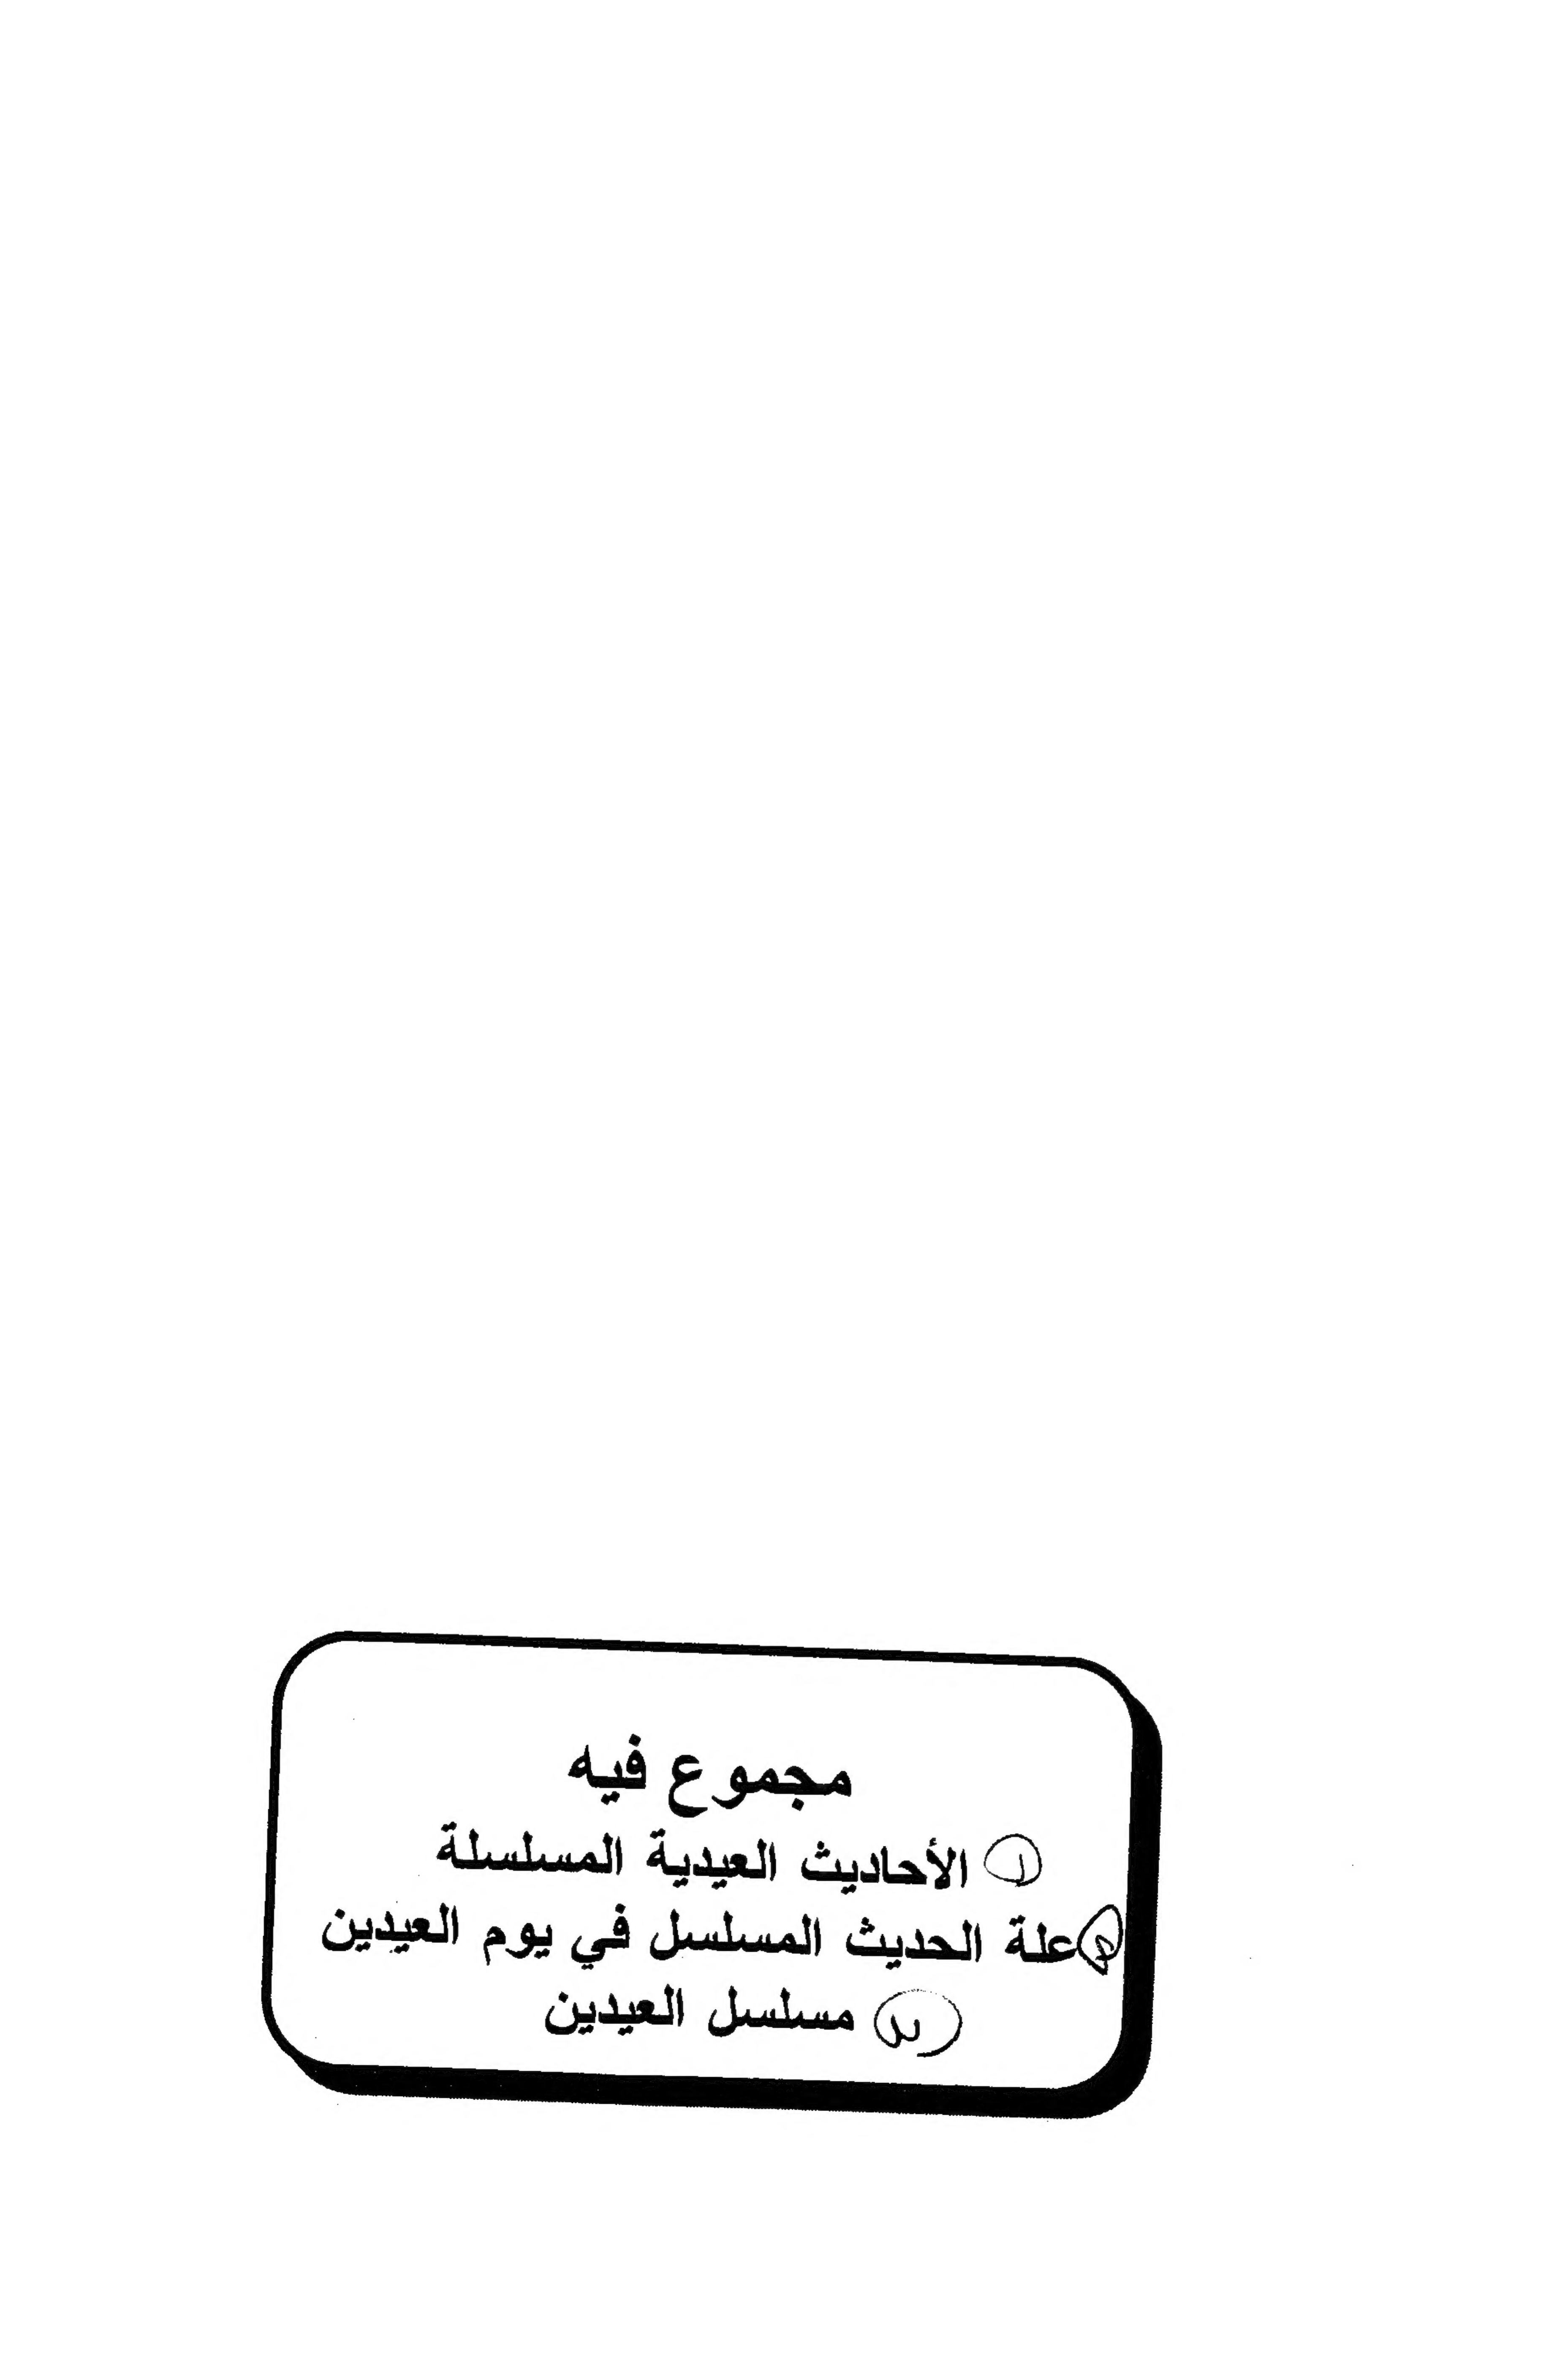 مجموع فيه
١ الأحاديث العيدية المسلسلة
علة الحديث المسلسل في يوم العيدين
مسلسل العيدين